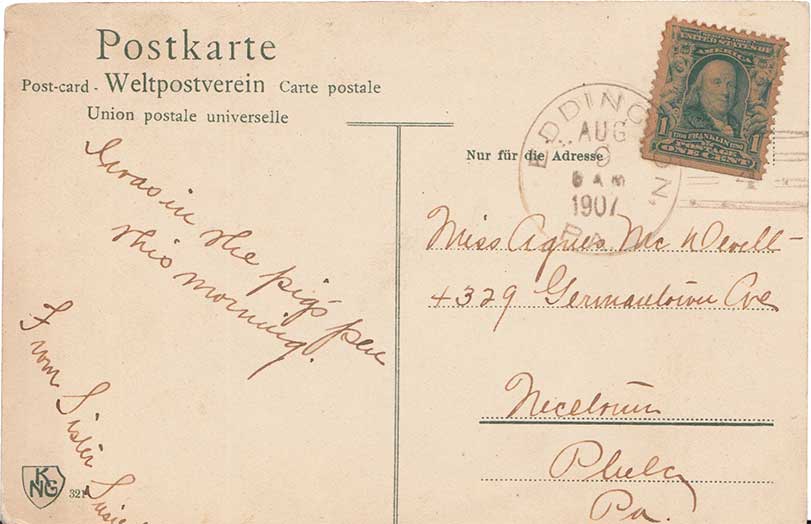 Postkarte
Post-card - Weltpostverein Carte postale
Union postale universelle
I was in the pig's pen
this morning.
From Sister Susie
KNG
321
Nur für die Adresse
EDDINGTON,
AUG
9
6 AM
1907
PA
UNITED STATES OF
AMERICA
1 1706 FRANKLIN 1790 1
POSTAGE
ONE CENT
Miss Agnes McDevell
4329 Germantown Ave
Nicetown
Phila
Pa.